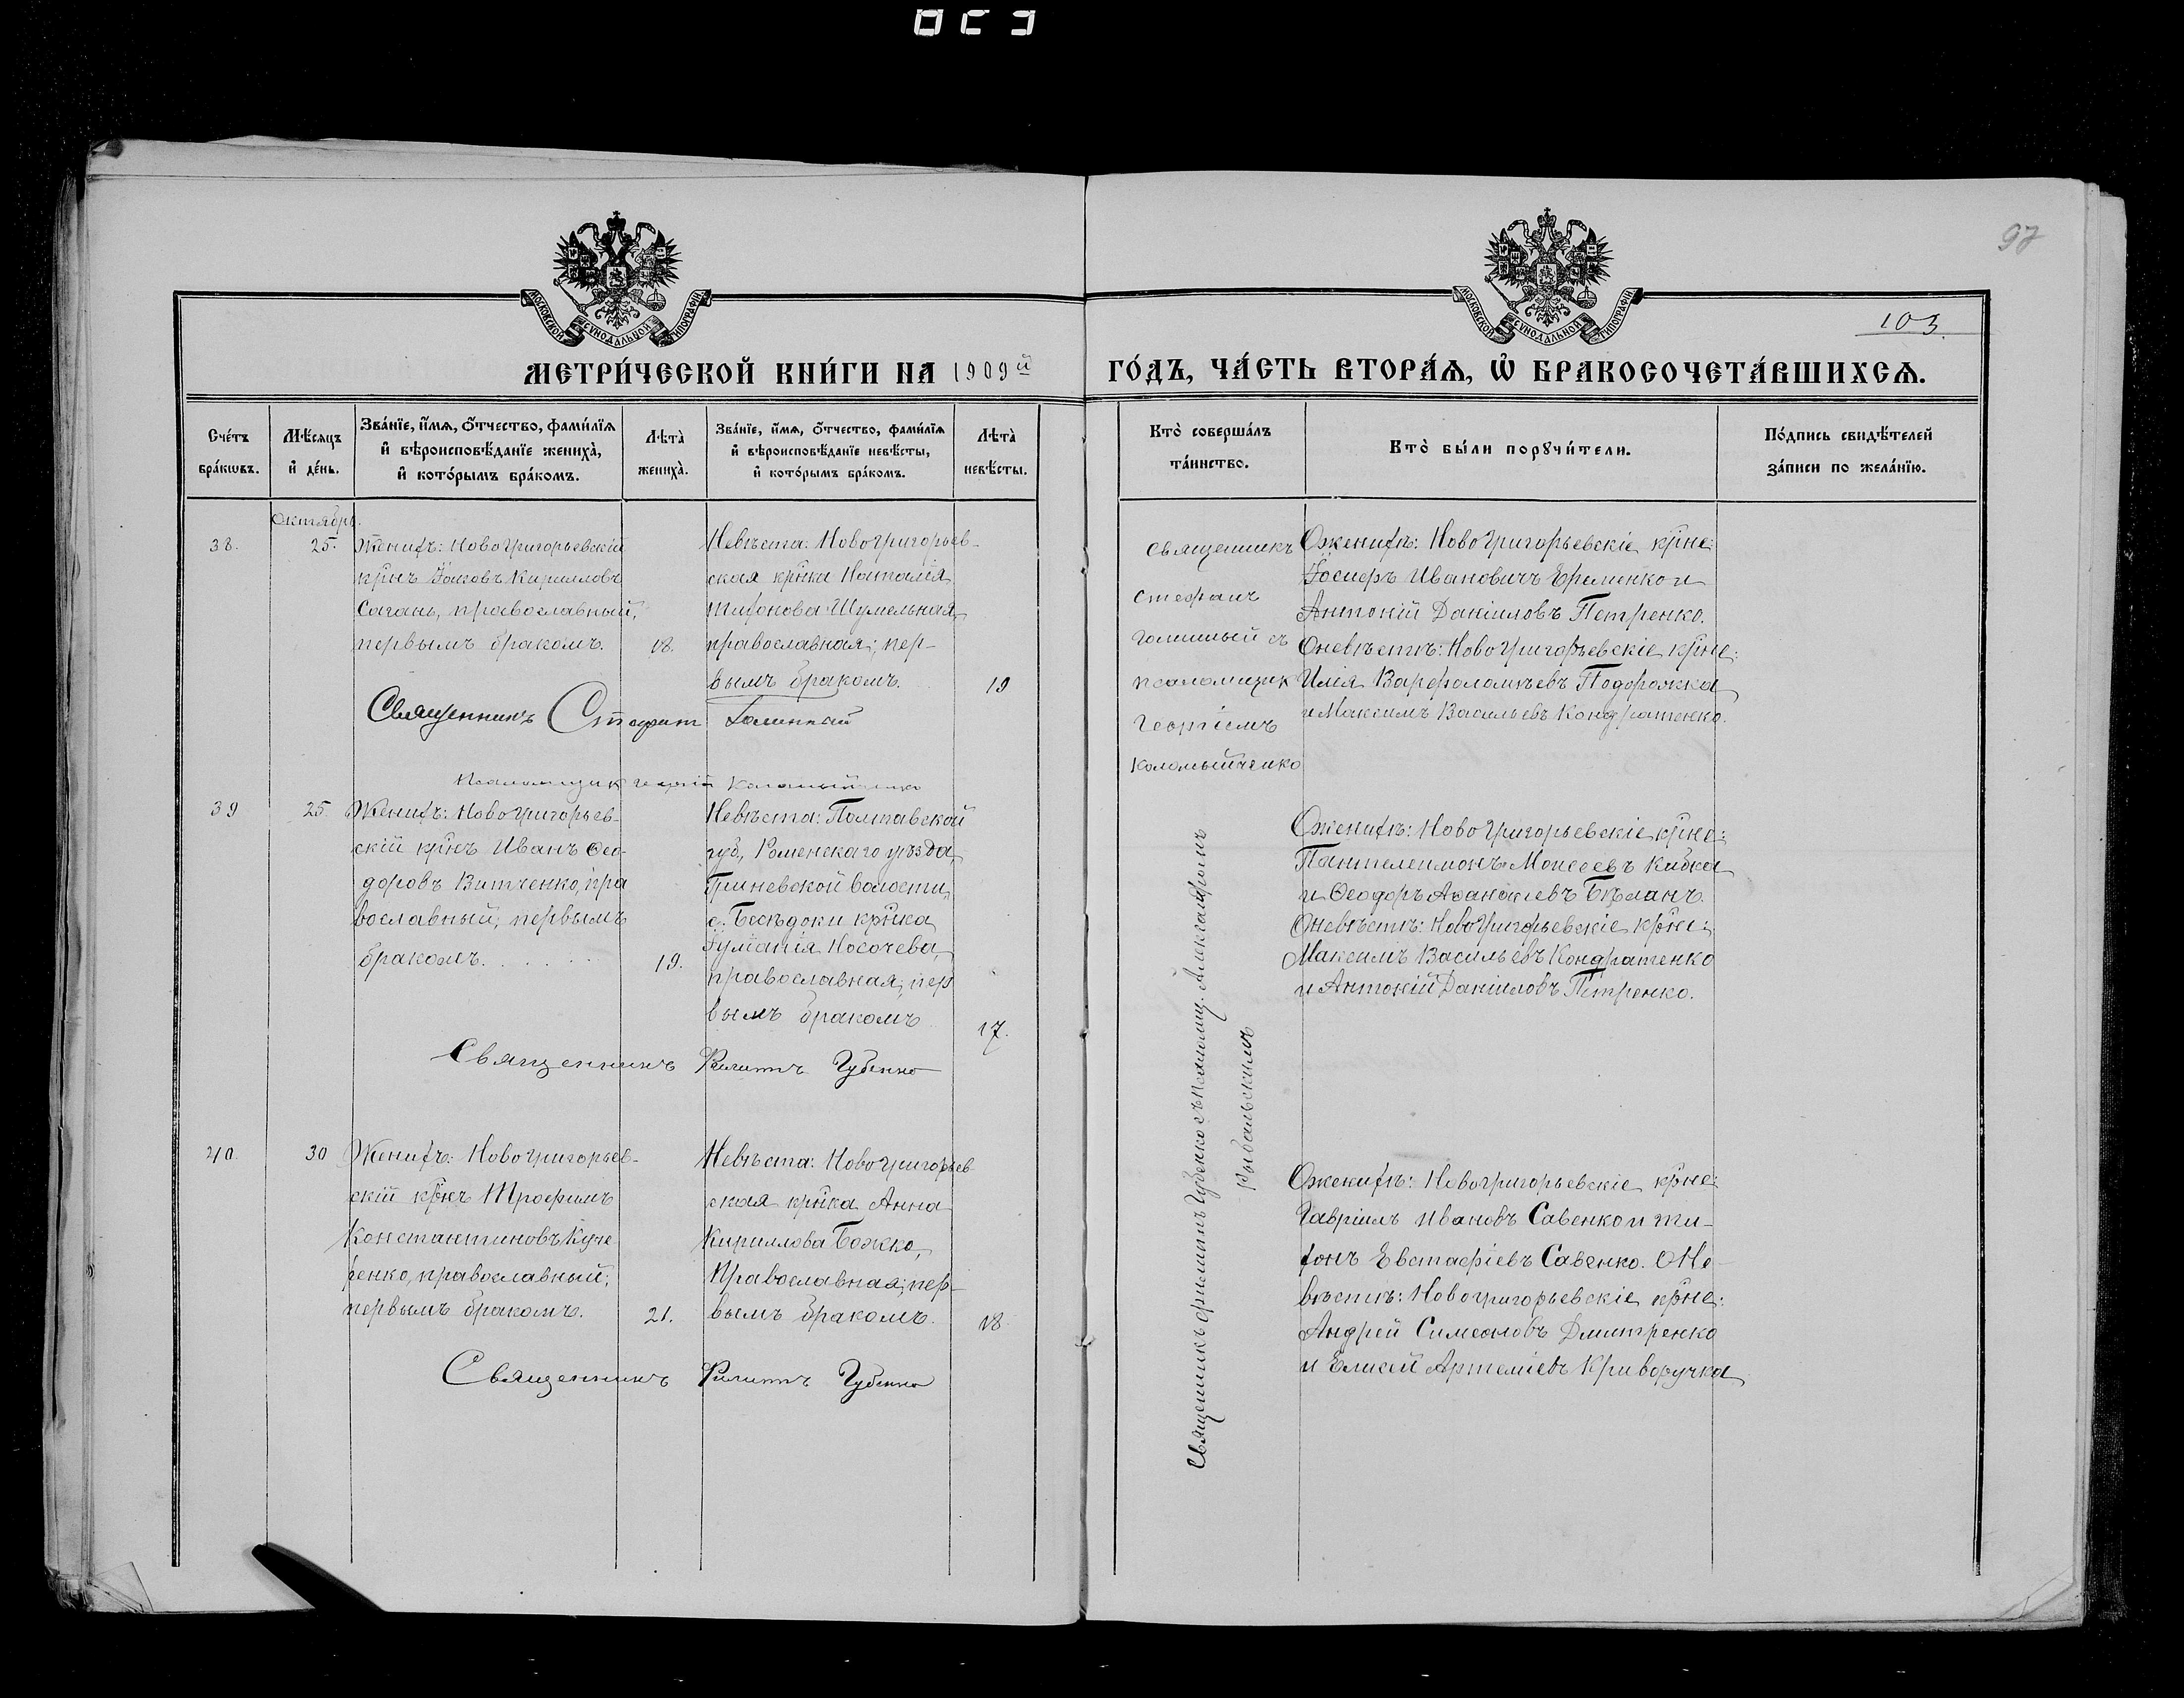 97
103.
МОСКОВСКОЙ СѴНОДАЛЬНОЙ ТИПОГРАФІИ.
МОСКОВСКОЙ СѴНОДАЛЬНОЙ ТИПОГРАФІИ.
МЕТРИ́ЧЕСКОЙ КНИ́ГИ НА 1909й ГО́ДЪ, ЧА́СТЬ ВТОРА́Ѧ, Ѽ БРАКОСОЧЕТА́ВШИХСѦ.
Сче́тъ бра́кѡвъ.
Мѣ́сяцъ и҆ де́нь.
Зва́нїе, и҆́мѧ, ѻ҆́тчество, фами́лїѧ
и҆ вѣроисповѣ́данїе жениха̀,
и҆ кото́рымъ бра́комъ.
Лѣта̀ жениха̀.
Зва́нїе, и҆́мѧ, ѻ҆́тчество, фами́лїѧ
и҆ вѣроисповѣ́данїе невѣ́сты,
и҆ кото́рымъ бра́комъ.
Лѣта̀ невѣ́сты.
Кто̀ соверша́лъ
та́инство.
Кто̀ бы́ли порꙋчи́тели.
По́дпись свидѣ́телей
за́писи по жела́нїю.
Октябрь.
38.
25.
Женихъ: Новогригорьевскій
крнъ Іаковъ Кирилловъ
Сагань, православный,
первымъ бракомъ.
18.
Невѣста: Новогригорьев-
ская крнка Наталія
Тихонова Шумельная
православная; пер-
вымъ бракомъ.
19
Священникъ Стефанъ Голинный
Псаломщик Георгій Коломыйченко
Священникъ
Стефанъ
Голинный съ
псаломщик
Георгіемъ
Коломыйченко
Ѻженихѣ: Новогригорьевскіе крне:
Іосифъ Ивановичъ Еременко и
Антоній Даніиловъ Петренко.
Ѻневѣстѣ: Новогригорьевскіе крне:
Илія Варфоломѣевъ Подорожка
и Максимъ Васильевъ Кондратенко.
39
25.
Женихъ: Новогригорьев-
скій крнъ Иванъ Ѳео-
доровъ Витченко, пра
вославный; первымъ
бракомъ. . . . . .
19.
Невѣста: Полтавской
губ., Роменскаго уѣзда,
Гриневской волости,
с. Бесѣдоки крнка
Іуліанія Носочева,
православная, пер
вымъ бракомъ
17.
Священникъ Филиппъ Губенко
Священникъ Филиппъ Губенко съ псаломщ. Александромъ
Рыбальскимъ
Ѻженихѣ: Новогригорьевскіе крне:
Пантелеимонъ Моисеевъ Кибка
и Ѳеодоръ Аѳанасіевъ Бѣланъ.
Ѻневѣстѣ: Новогригорьевскіе крне:
Максимъ Васильевъ Кондратенко
и Антоній Даніиловъ Петренко.
40.
30
Женихъ: Новогригорьев-
скій крнъ Трофимъ
Константиновъ Куче
ренко, православный;
первымъ бракомъ.
21.
Невѣста: Новогригорьев
ская крнка Анна
Кириллова Божко,
Православная; пер-
вымъ бракомъ.
18
Священникъ Филиппъ Губенко
Ѻженихѣ: Новогригорьевскіе крне:
Гавріилъ Ивановъ Савенко и Ти-
хонъ Евстафіевъ Савенко. Ѻ Не-
вѣстѣ: Новогригорьевскіе крне:
Андрей Симеоновъ Дмитренко
и Елисей Артеміевъ Криворучка